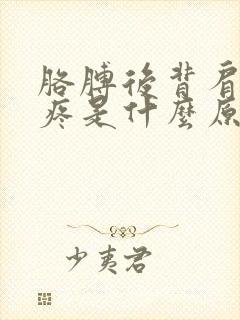 胳膊後背肩
疼是什麼原
少夷君